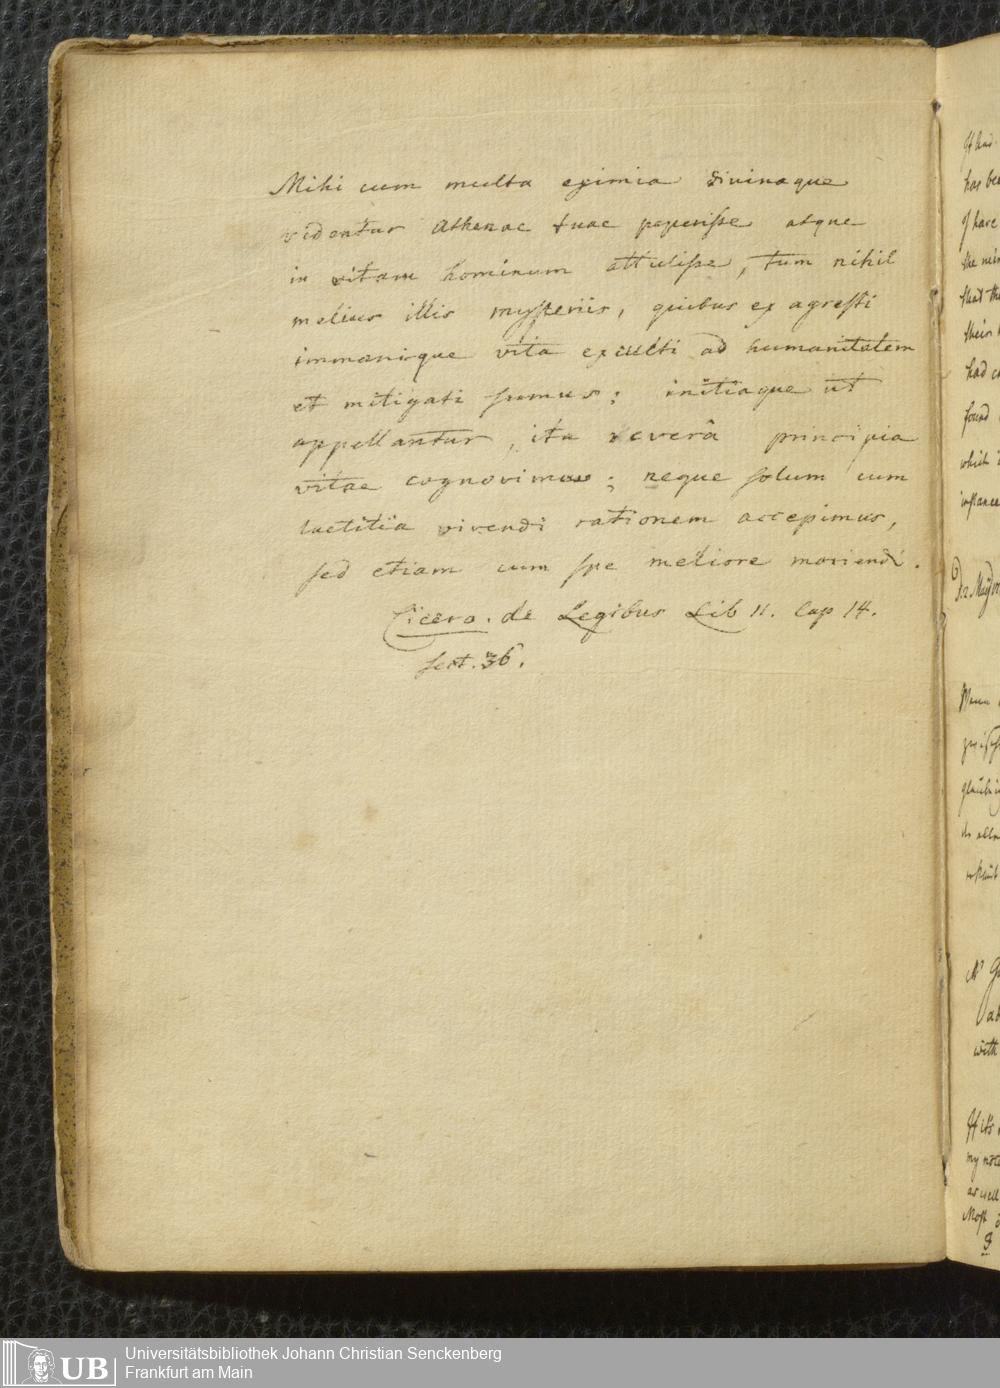 Mihi cum multa eximia divinaque
videntur Athenae tuae peperisse atque
in vitam hominum attulisse, tum nihil
melius illis mysteriis, quibus ex agresti
immanique vita exculti ad humanitatem
et mitigati sumus; initiaque ut
appellantur, ita reverâ principia
vitae cognovimus; neque solum cum
laetitia vivendi rationem accepimus,
sed etiam cum spe meliore moriendi.
Cicero. de Legibus Lib II. Cap 14.
sect. 36.
has
I have
the
that
their
had
found
which
instance
with
my
as well
Most
UB Universitätsbibliothek Johann Christian Senckenberg
Frankfurt am Main